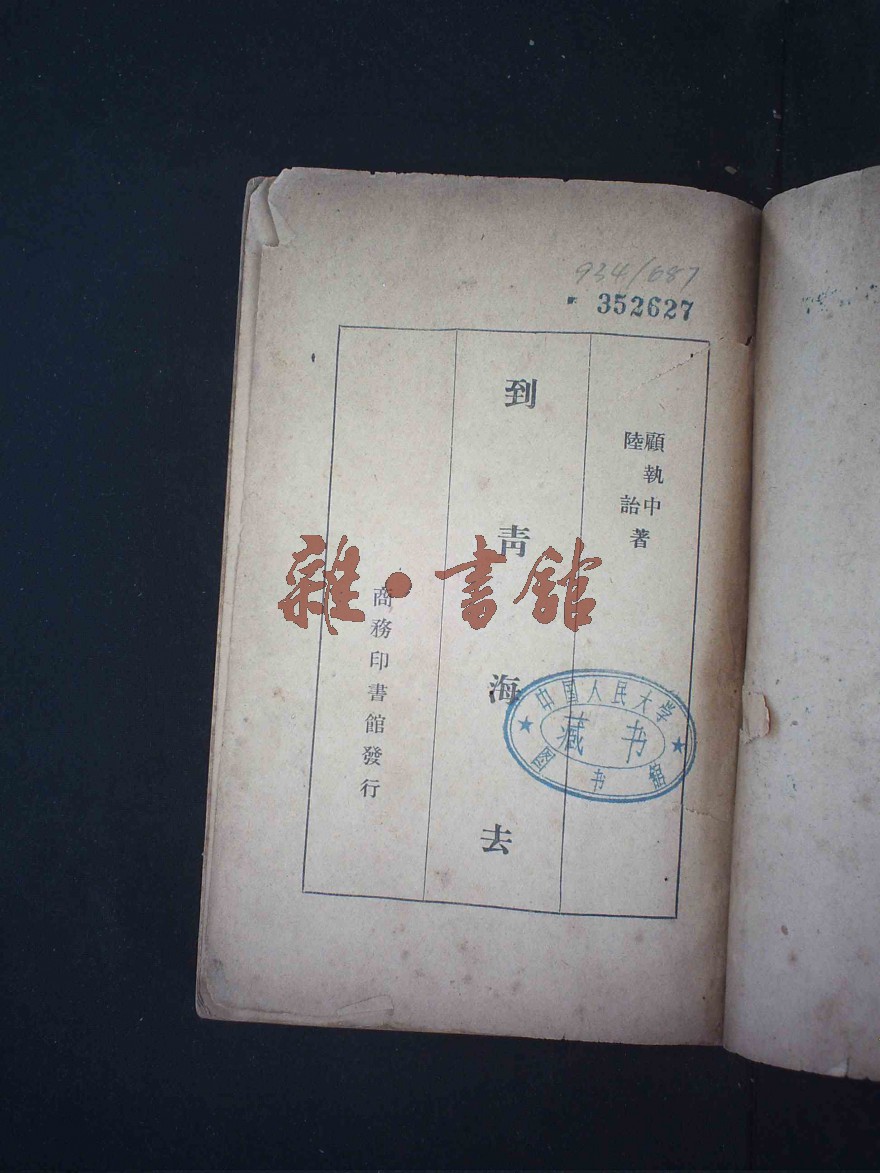 934/687
352627
顧執中
陸詒
著
到青海去
商務印書館發行
雜·書館
中国人民大学
藏书
图书馆